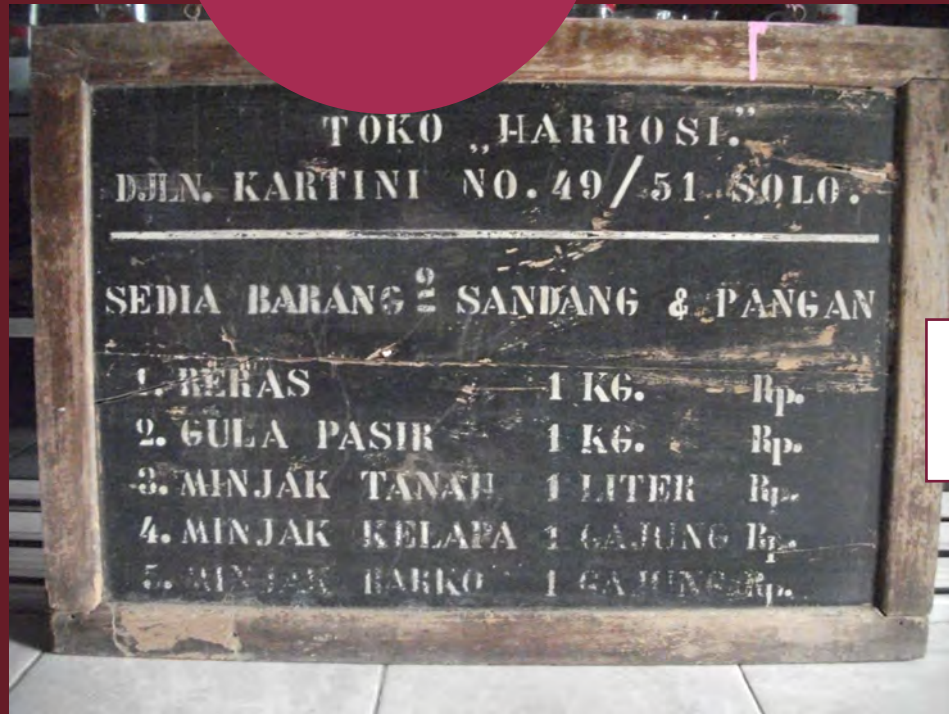 TOKO „HARROSI.”
DJLN. KARTINI NO. 49/51 SOLO.
SEDIA BARANG 2 SANDANG & PANGAN
1. BERAS 1 KG. Rp.
2. GULA PASIR 1 KG. Rp.
3. MINJAK TANAH 1 LITER Rp.
4. MINJAK KELAPA 1 GAJUNG Rp.
5. MINJAK BARKO 1 GAJUNG Rp.